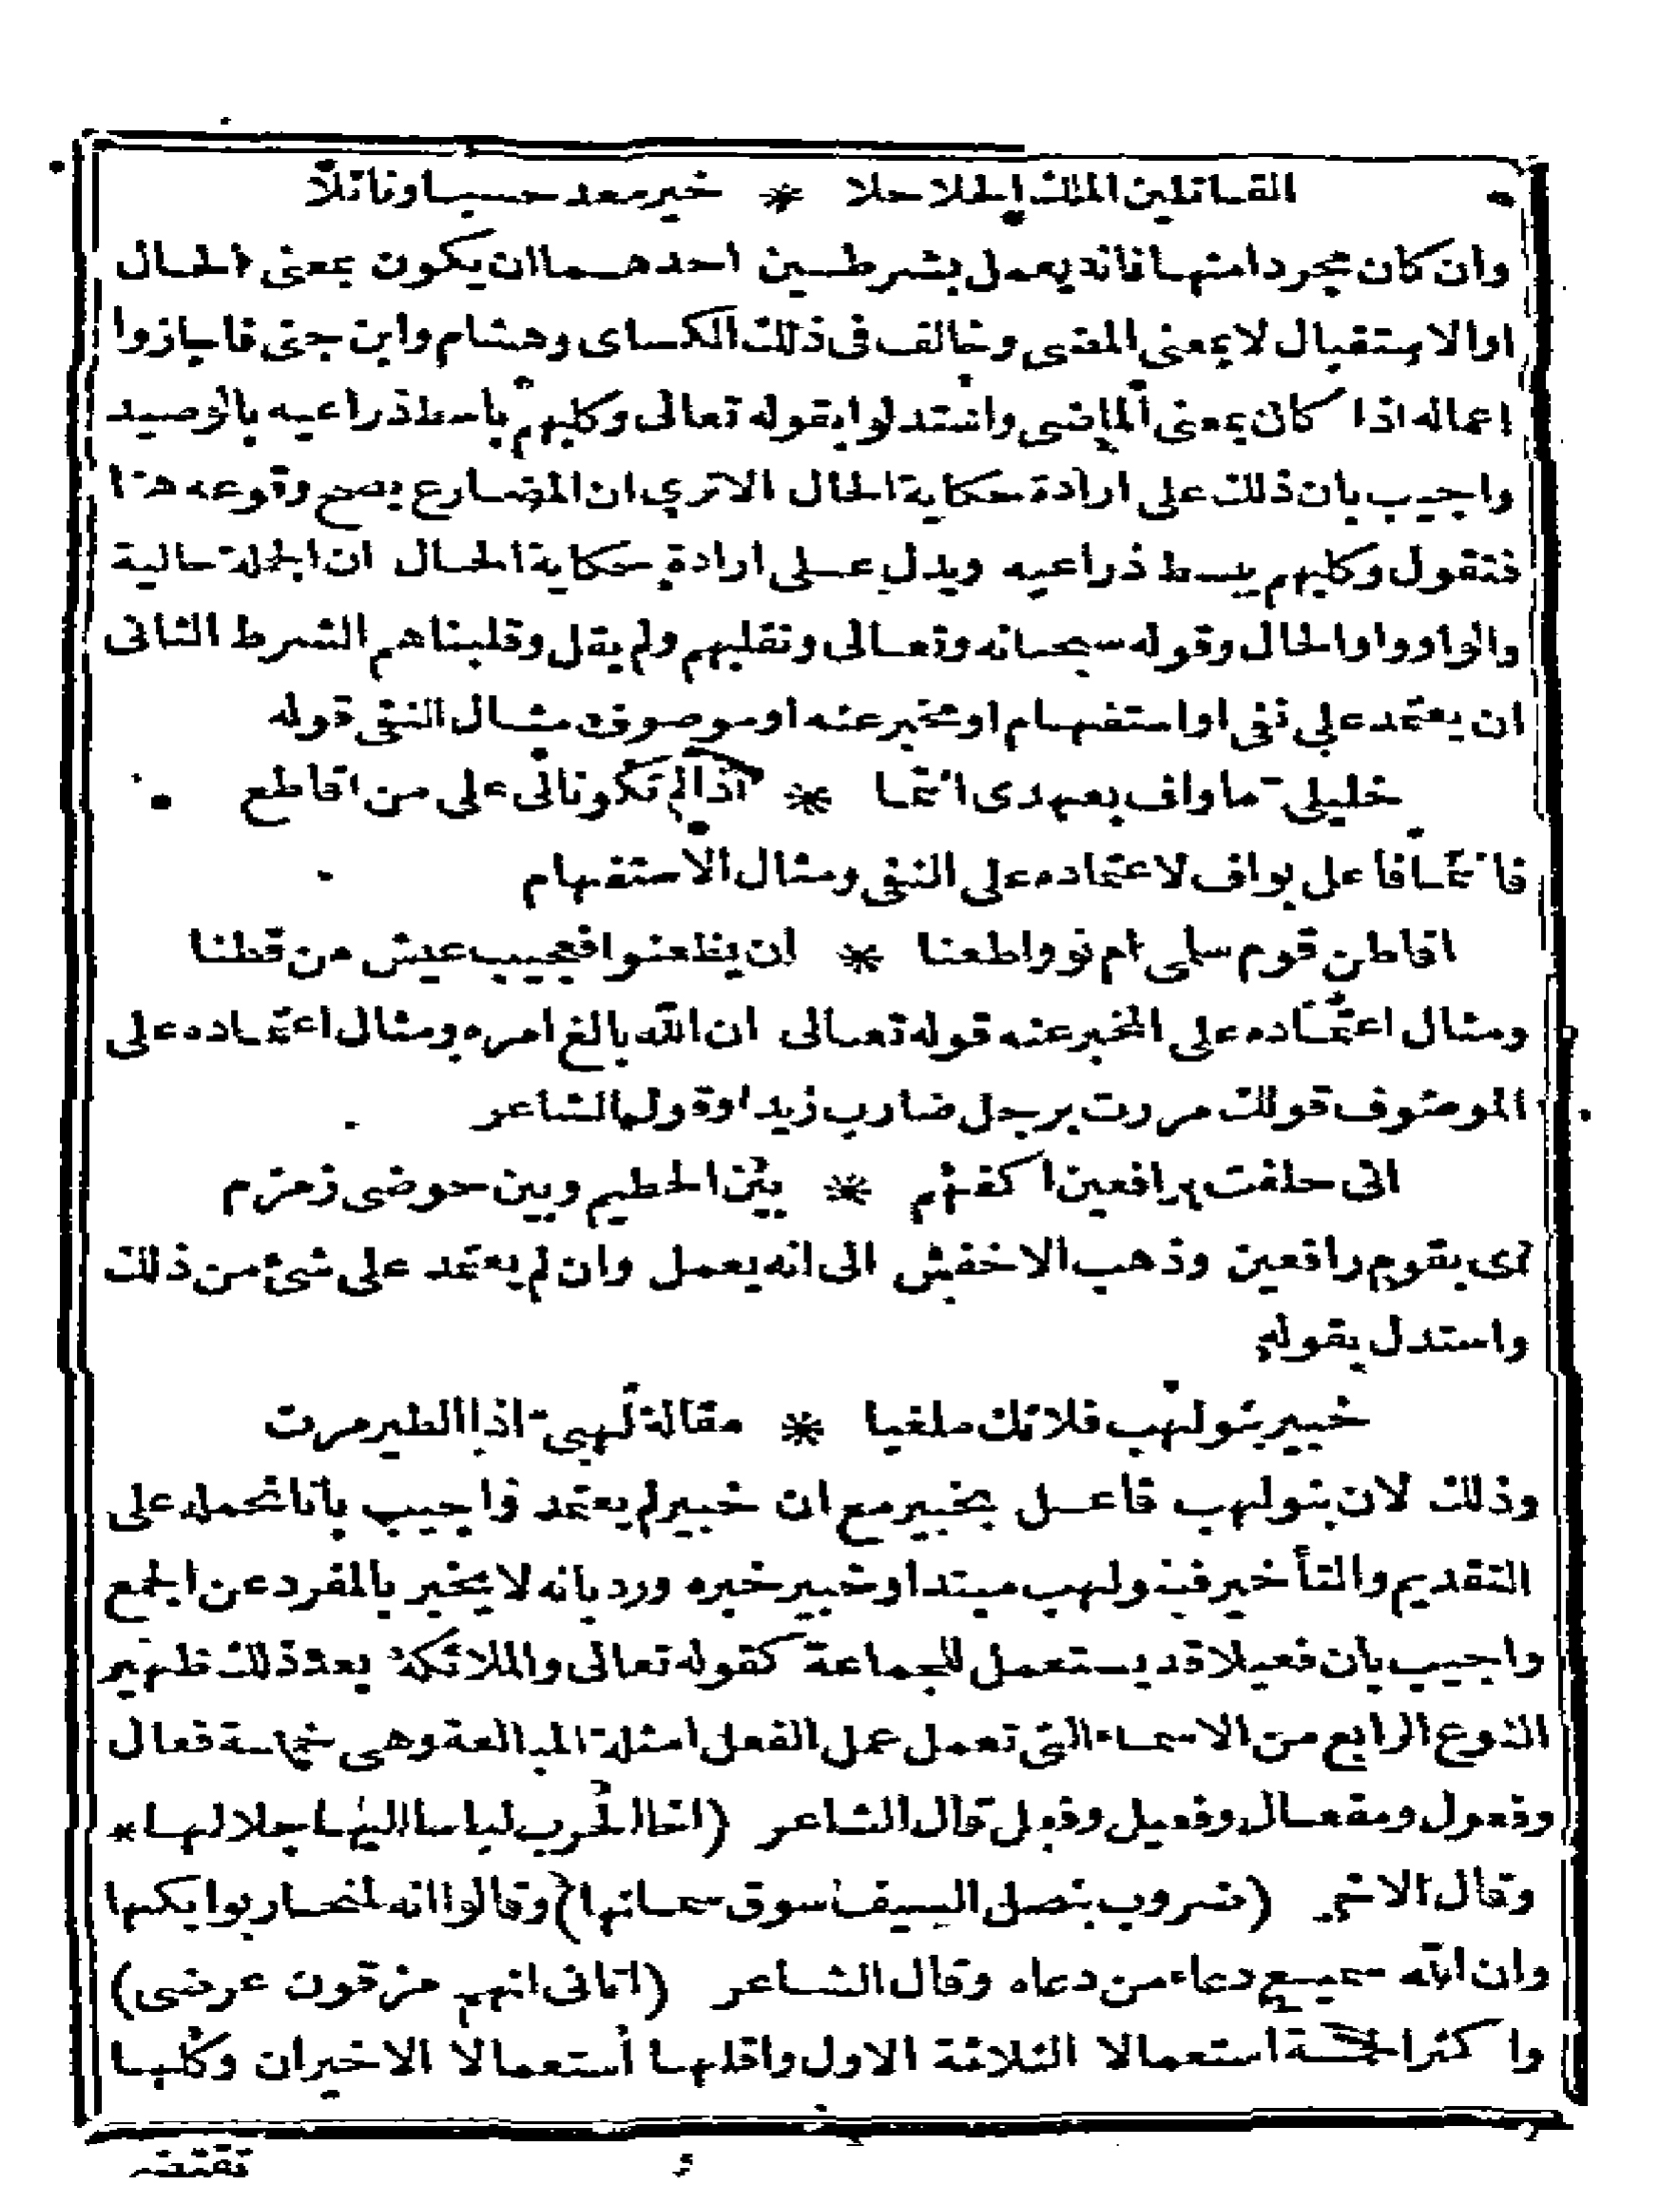 القاتلين الملك الحلاحلا * خير معد حسبا ونائلا
وان كان مجردا منها فانه يعمل بشرطين احدهما ان يكون بمعنى الحال
اوالاستقبال لا بمعنى المضى وخالف فى ذلك الكساى وهشام وابن جنى فاجازوا
اعماله اذا كان بمعنى الماضى واستدلوا بقوله تعالى وكلبهم باسط ذراعيه بالوصيد
واجيب بان ذلك على ارادة حكاية الحال الاترى ان المضارع يصح وقوعه هنا
فتقول وكلبهم يبسط ذراعيه ويدل على ارادة حكاية الحال ان الجملة حالية
والواو واوالحال وقوله سبحانه وتعالى ونقلبهم ولم يقل وقلبناهم الشرط الثانى
ان يعتمد على نفى اواستفهام او مخبر عنه او موصوف مثال النفى قوله
خليلى ما واف بعهدى انتما * اذا لم تكونا لى على من اقاطع
فانتما فاعل بواف لاعتماده على النفى ومثال الاستفهام
اقاطن قوم سلمى ام نووا ظعنا * ان يظعنوا فعجيب عيش من قطنا
ومثال اعتماده على المخبر عنه قوله تعالى ان الله بالغ امره ومثال اعتماده على
الموصوف قولك مررت برجل ضارب زيدا وقول الشاعر
انى حلفت برافعين اكفهم * بين الحطيم وبين حوضى زمزم
اى بقوم رافعين وذهب الاخفش الى انه يعمل وان لم يعتمد على شئ من ذلك
واستدل بقوله
خبير بنو لهب فلا تك ملغيا * مقالة لهبى اذا الطير مرت
وذلك لان بنو لهب فاعل بخبير مع ان خبير لم يعتمد واجيب بانا نحمله على
التقديم والتأخير فبنو لهب مبتدا وخبير خبره ورد بانه لا يخبر بالمفرد عن الجمع
واجيب بان فعيلا قد يستعمل للجماعة كقوله تعالى والملائكة بعد ذلك ظهير
النوع الرابع من الاسماء التى تعمل عمل الفعل امثلة المبالغة وهى خمسة فعال
وفعول ومفعال وفعيل وفعل قال الشاعر (اخا الحرب لباسا اليها جلالها *
وقال الاخر (ضروب بنصل السيف سوق سمانها) وقالوا انه لمنحار بوايكها
وان الله سميع دعاء من دعاه وقال الشاعر (اتانى انهم مزقون عرضى)
واكثر الخمسة استعمالا الثلاثة الاول واقلها استعمالا الاخيران وكلها
تقتضى